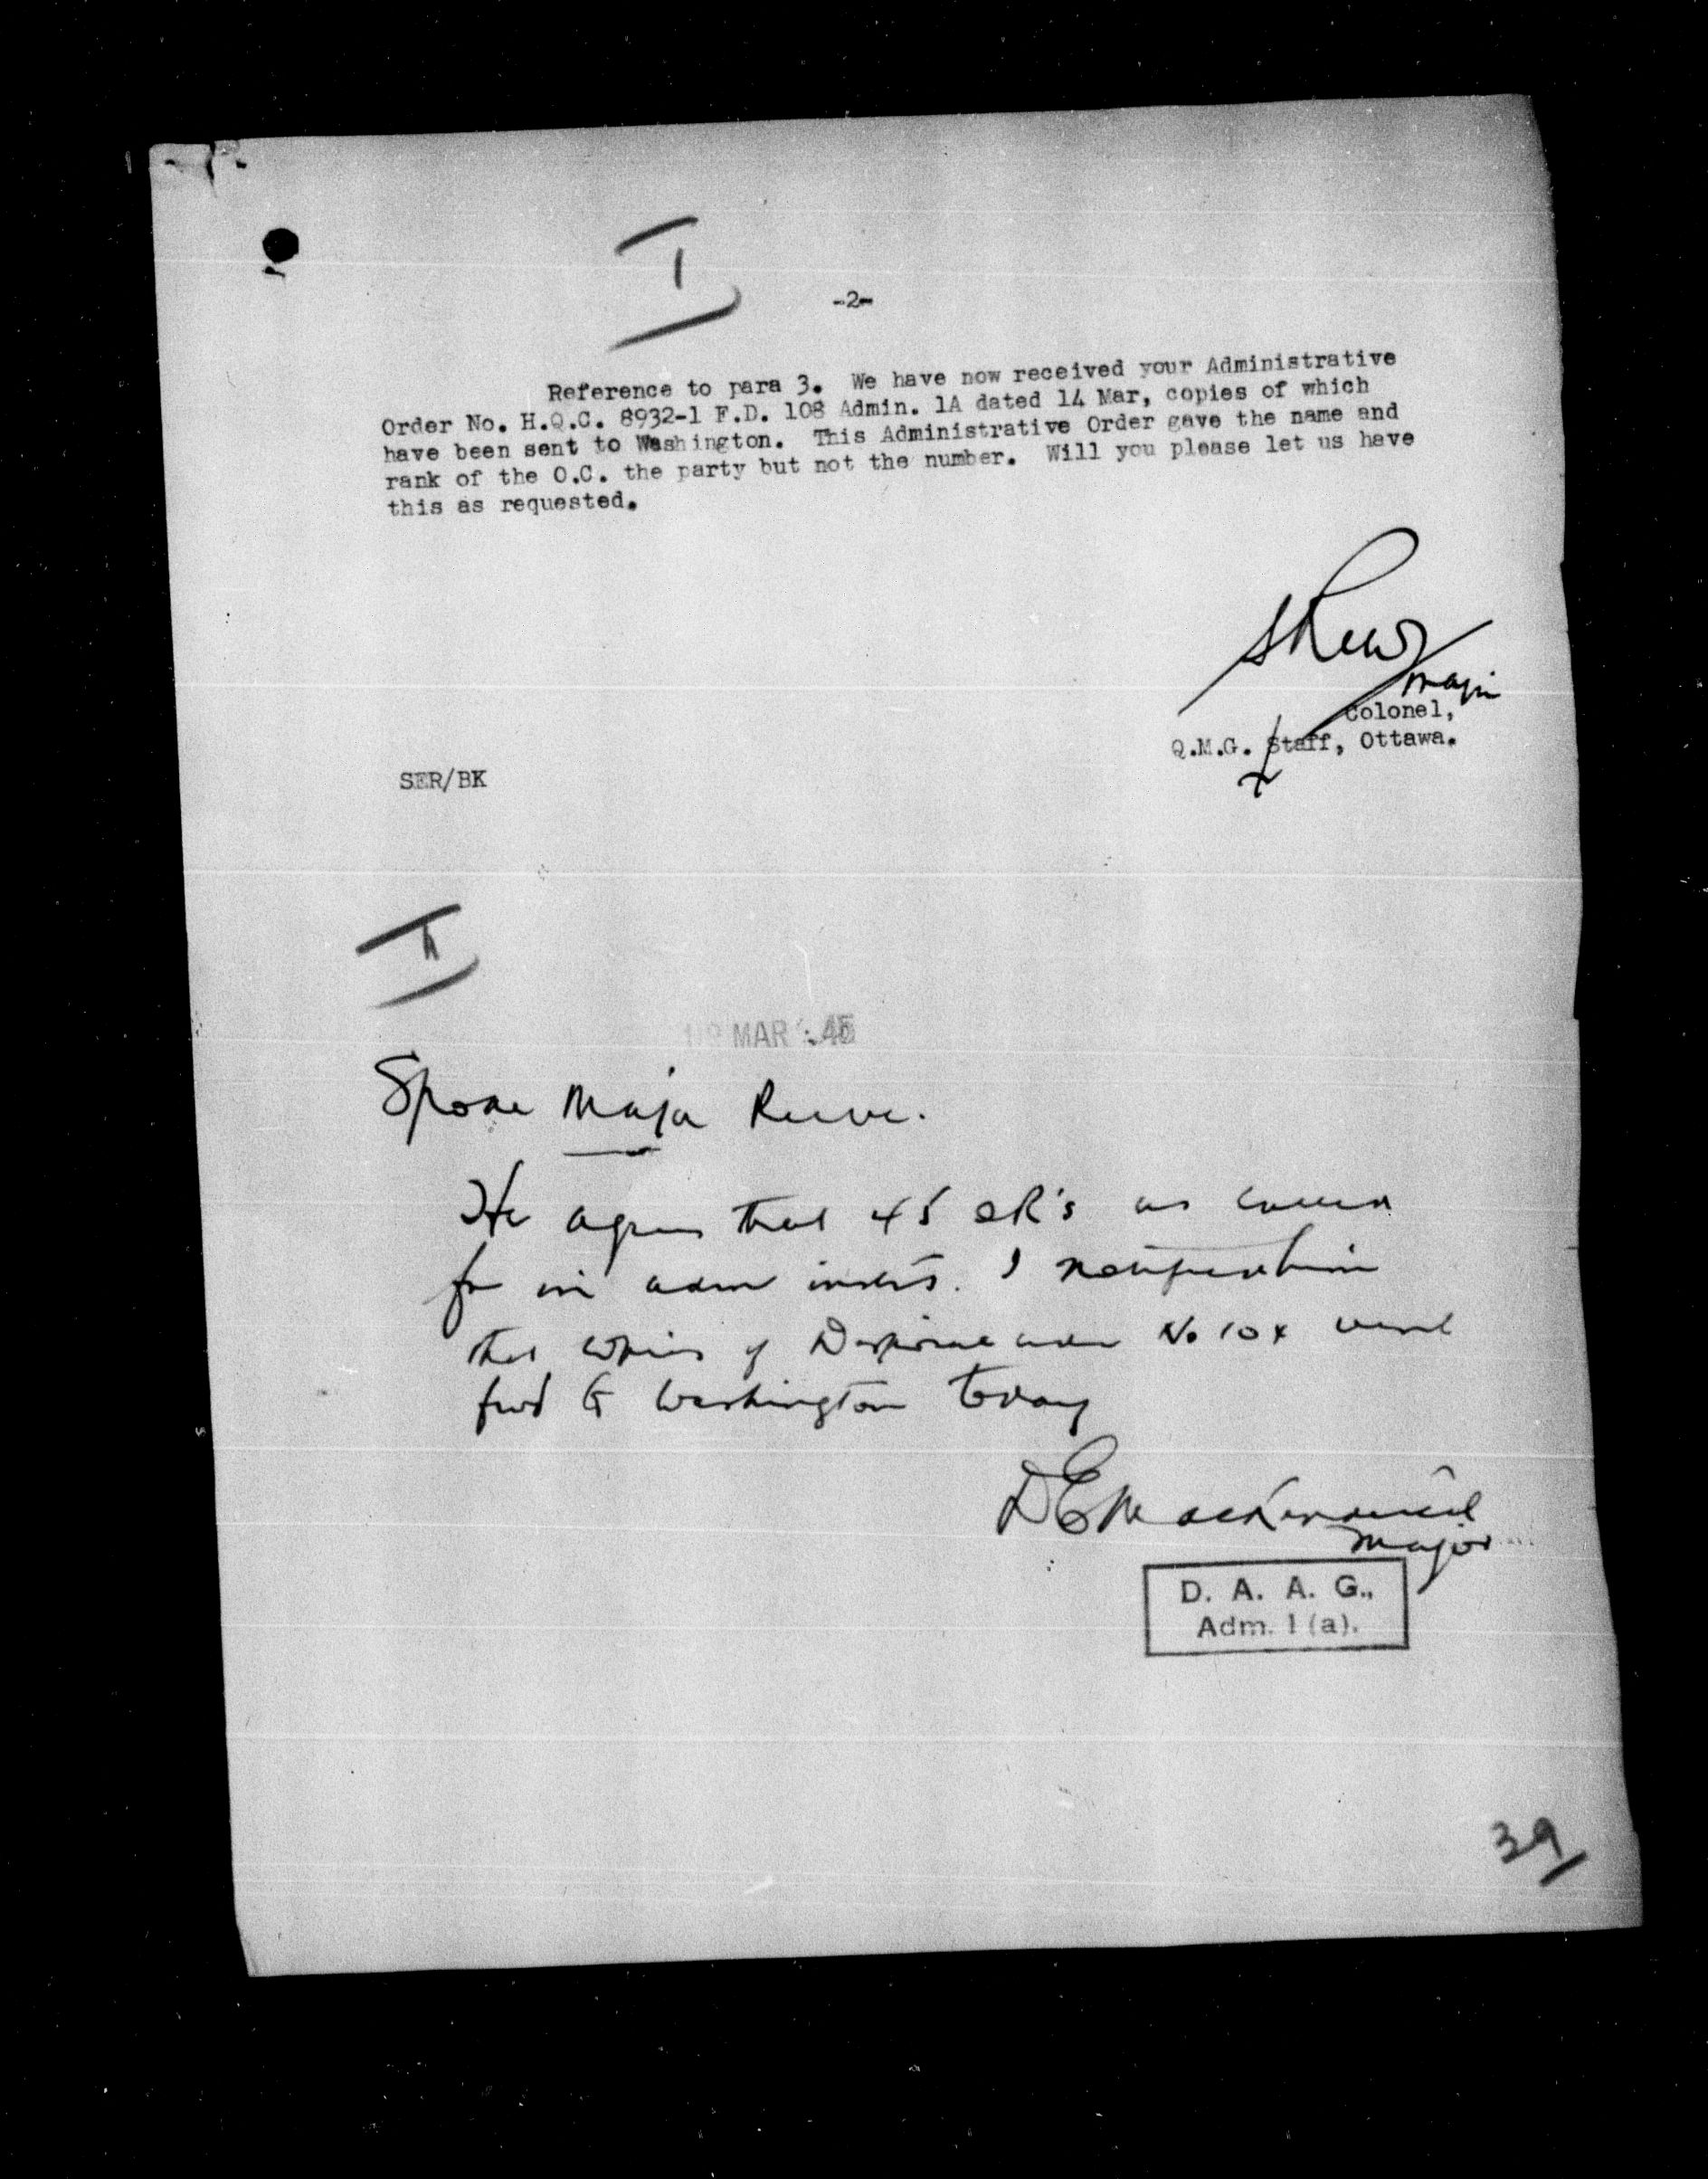 I
-2-
Reference to para 3. We have now received your Administrative
Order No. H.Q.C. 8932-1 F.D. 108 Admin. 1A dated 14 Mar, copies of which
have been sent to Washington. This Administrative Order gave the name and
rank of the O.C. the party but not the number. Will you please let us have
this as requested.
Major
Colonel,
Q.M.G. Staff, Ottawa.
SER/BK
MAR 45
Spoke Major Reeve.
He agrees that 45 OR's as
for in adm insts. I
that copies of No 108
fwd to Washington today
Major
D. A. A. G.,
Adm. 1 (a).
39